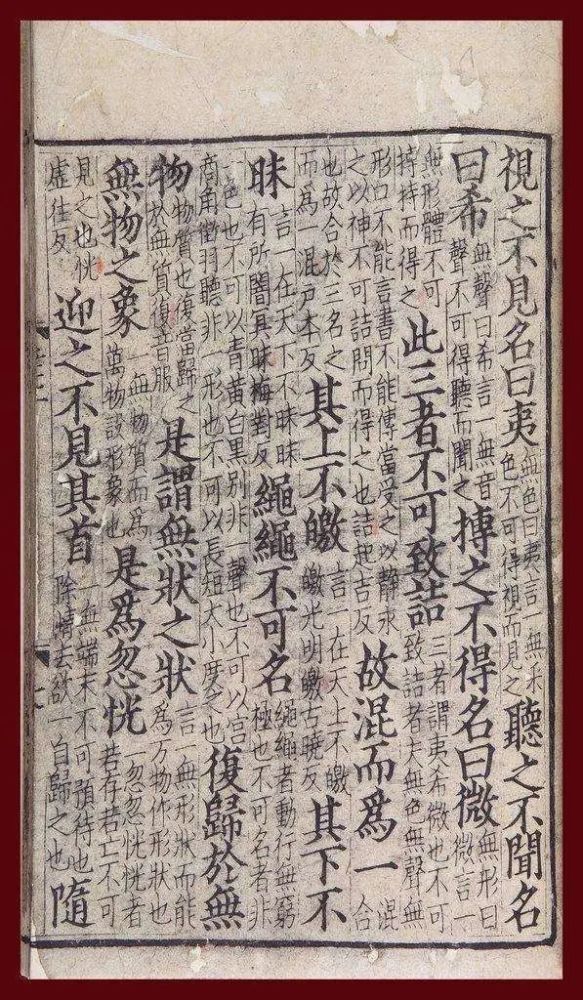 視之不見名曰夷無色曰夷言一無采色不可得視而見之聽之不聞名
曰希無聲曰希言一無音聲不可得聽而聞之搏之不得名曰微無形曰微言一
無形體不可搏持而得之此三者不可致詰三者謂夷希微也不可致詰者夫無色無聲無
形口不能言書不能傳當受之以靜求之以神不可詰問而得之也詰起吉反故混而爲一混合
也故合於三名之而爲一混户本反其上不皦言一在天上不皦皦光明皦古曉反其下不
昧言一在天下不昧昧有所闇冥昧梅對反繩繩不可名繩繩者動行無窮極也不可名者非
一色也不可以青黃白黑別非一聲也不可以宮商角徵羽聽非一形也不可以長短大小度之也復歸於無
物物質也復當歸之於無質復音服是謂無狀之狀言一無形狀而能爲万物作形狀也
無物之象一無物質而爲萬物設形象也是爲忽恍忽忽恍恍者若存若亡不可
見之也恍虛往反迎之不見其首一無端末不可預待也除情去欲一自歸之也隨